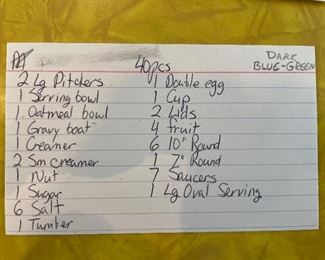 40pcs
DARK
BLUE-GREEN
2 Lg Pitchers
1 Serving bowl
1 Oatmeal bowl
1 Gravy boat
1 Creamer
2 Sm creamer
1 Nut
1 Sugar
6 Salt
1 Tumbler
1 Double egg
1 Cup
2 Lids
4 fruit
6 10" Round
1 7" Round
7 Saucers
1 Lg Oval Serving